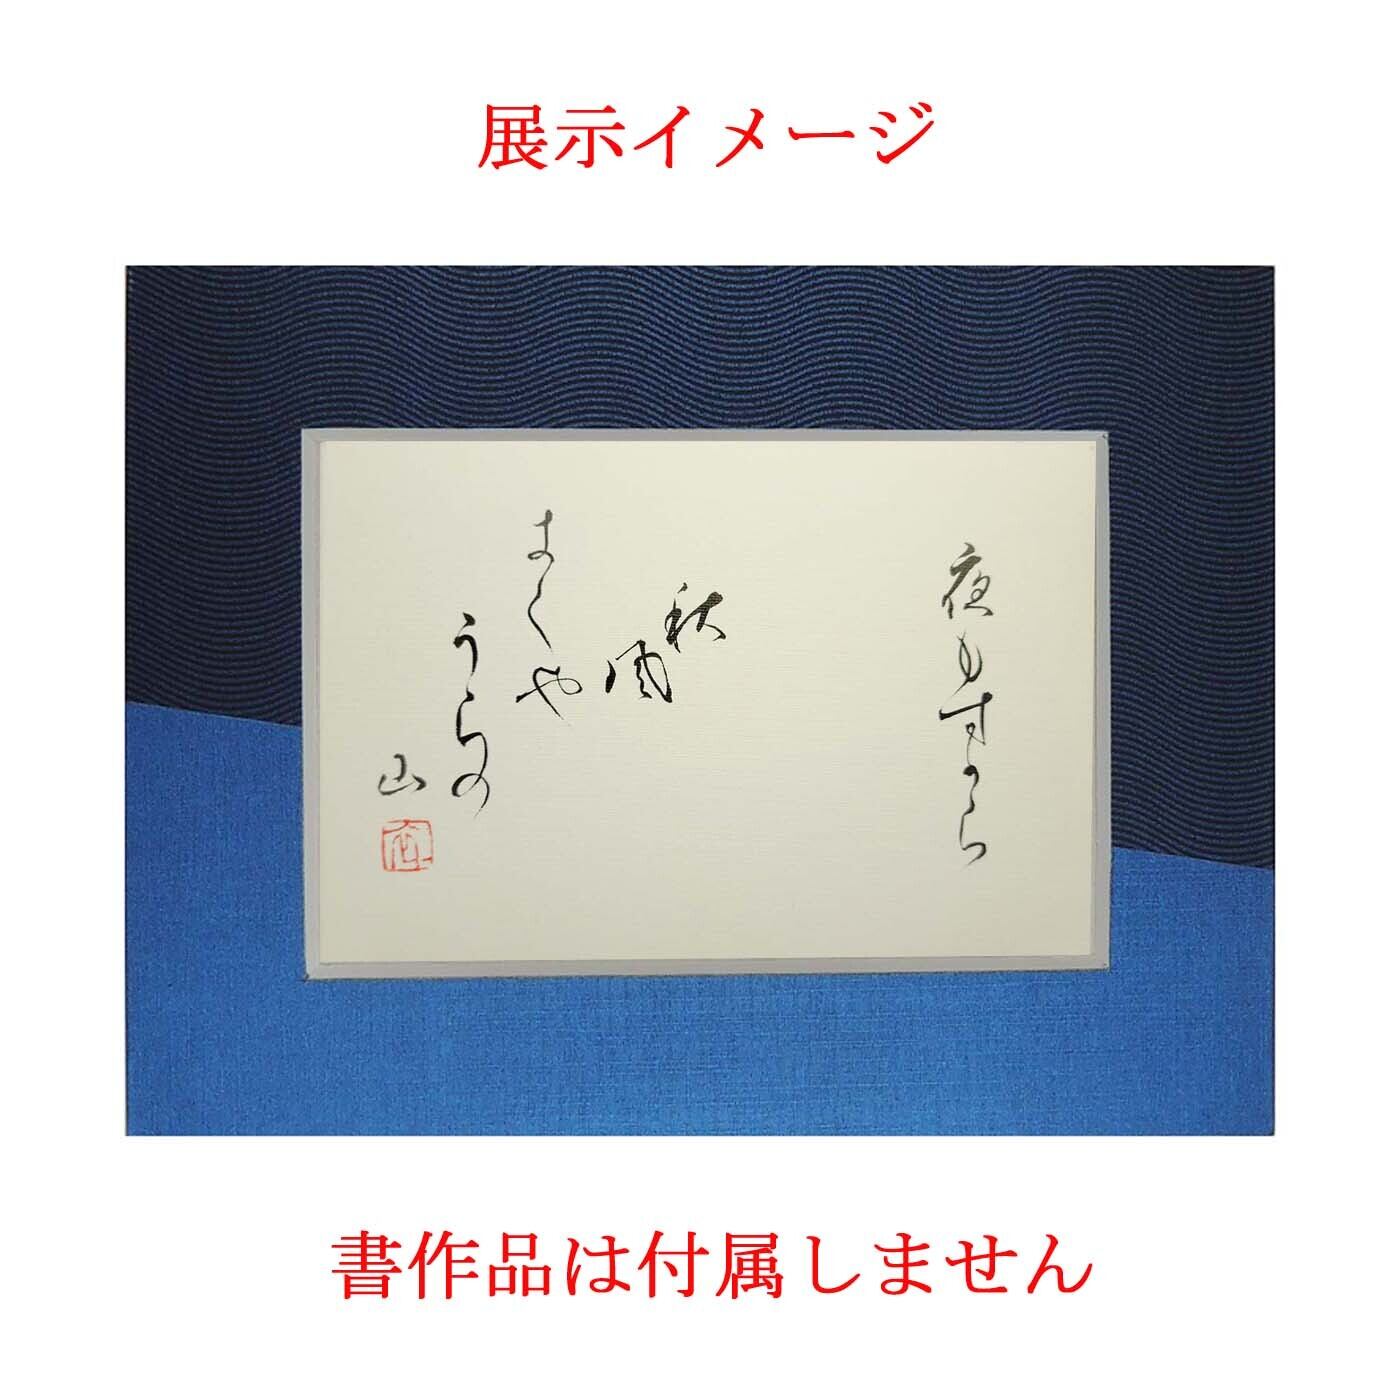 展示イメージ
夜もすから
秋
風
きくや
うらの
山
書作品は付属しません